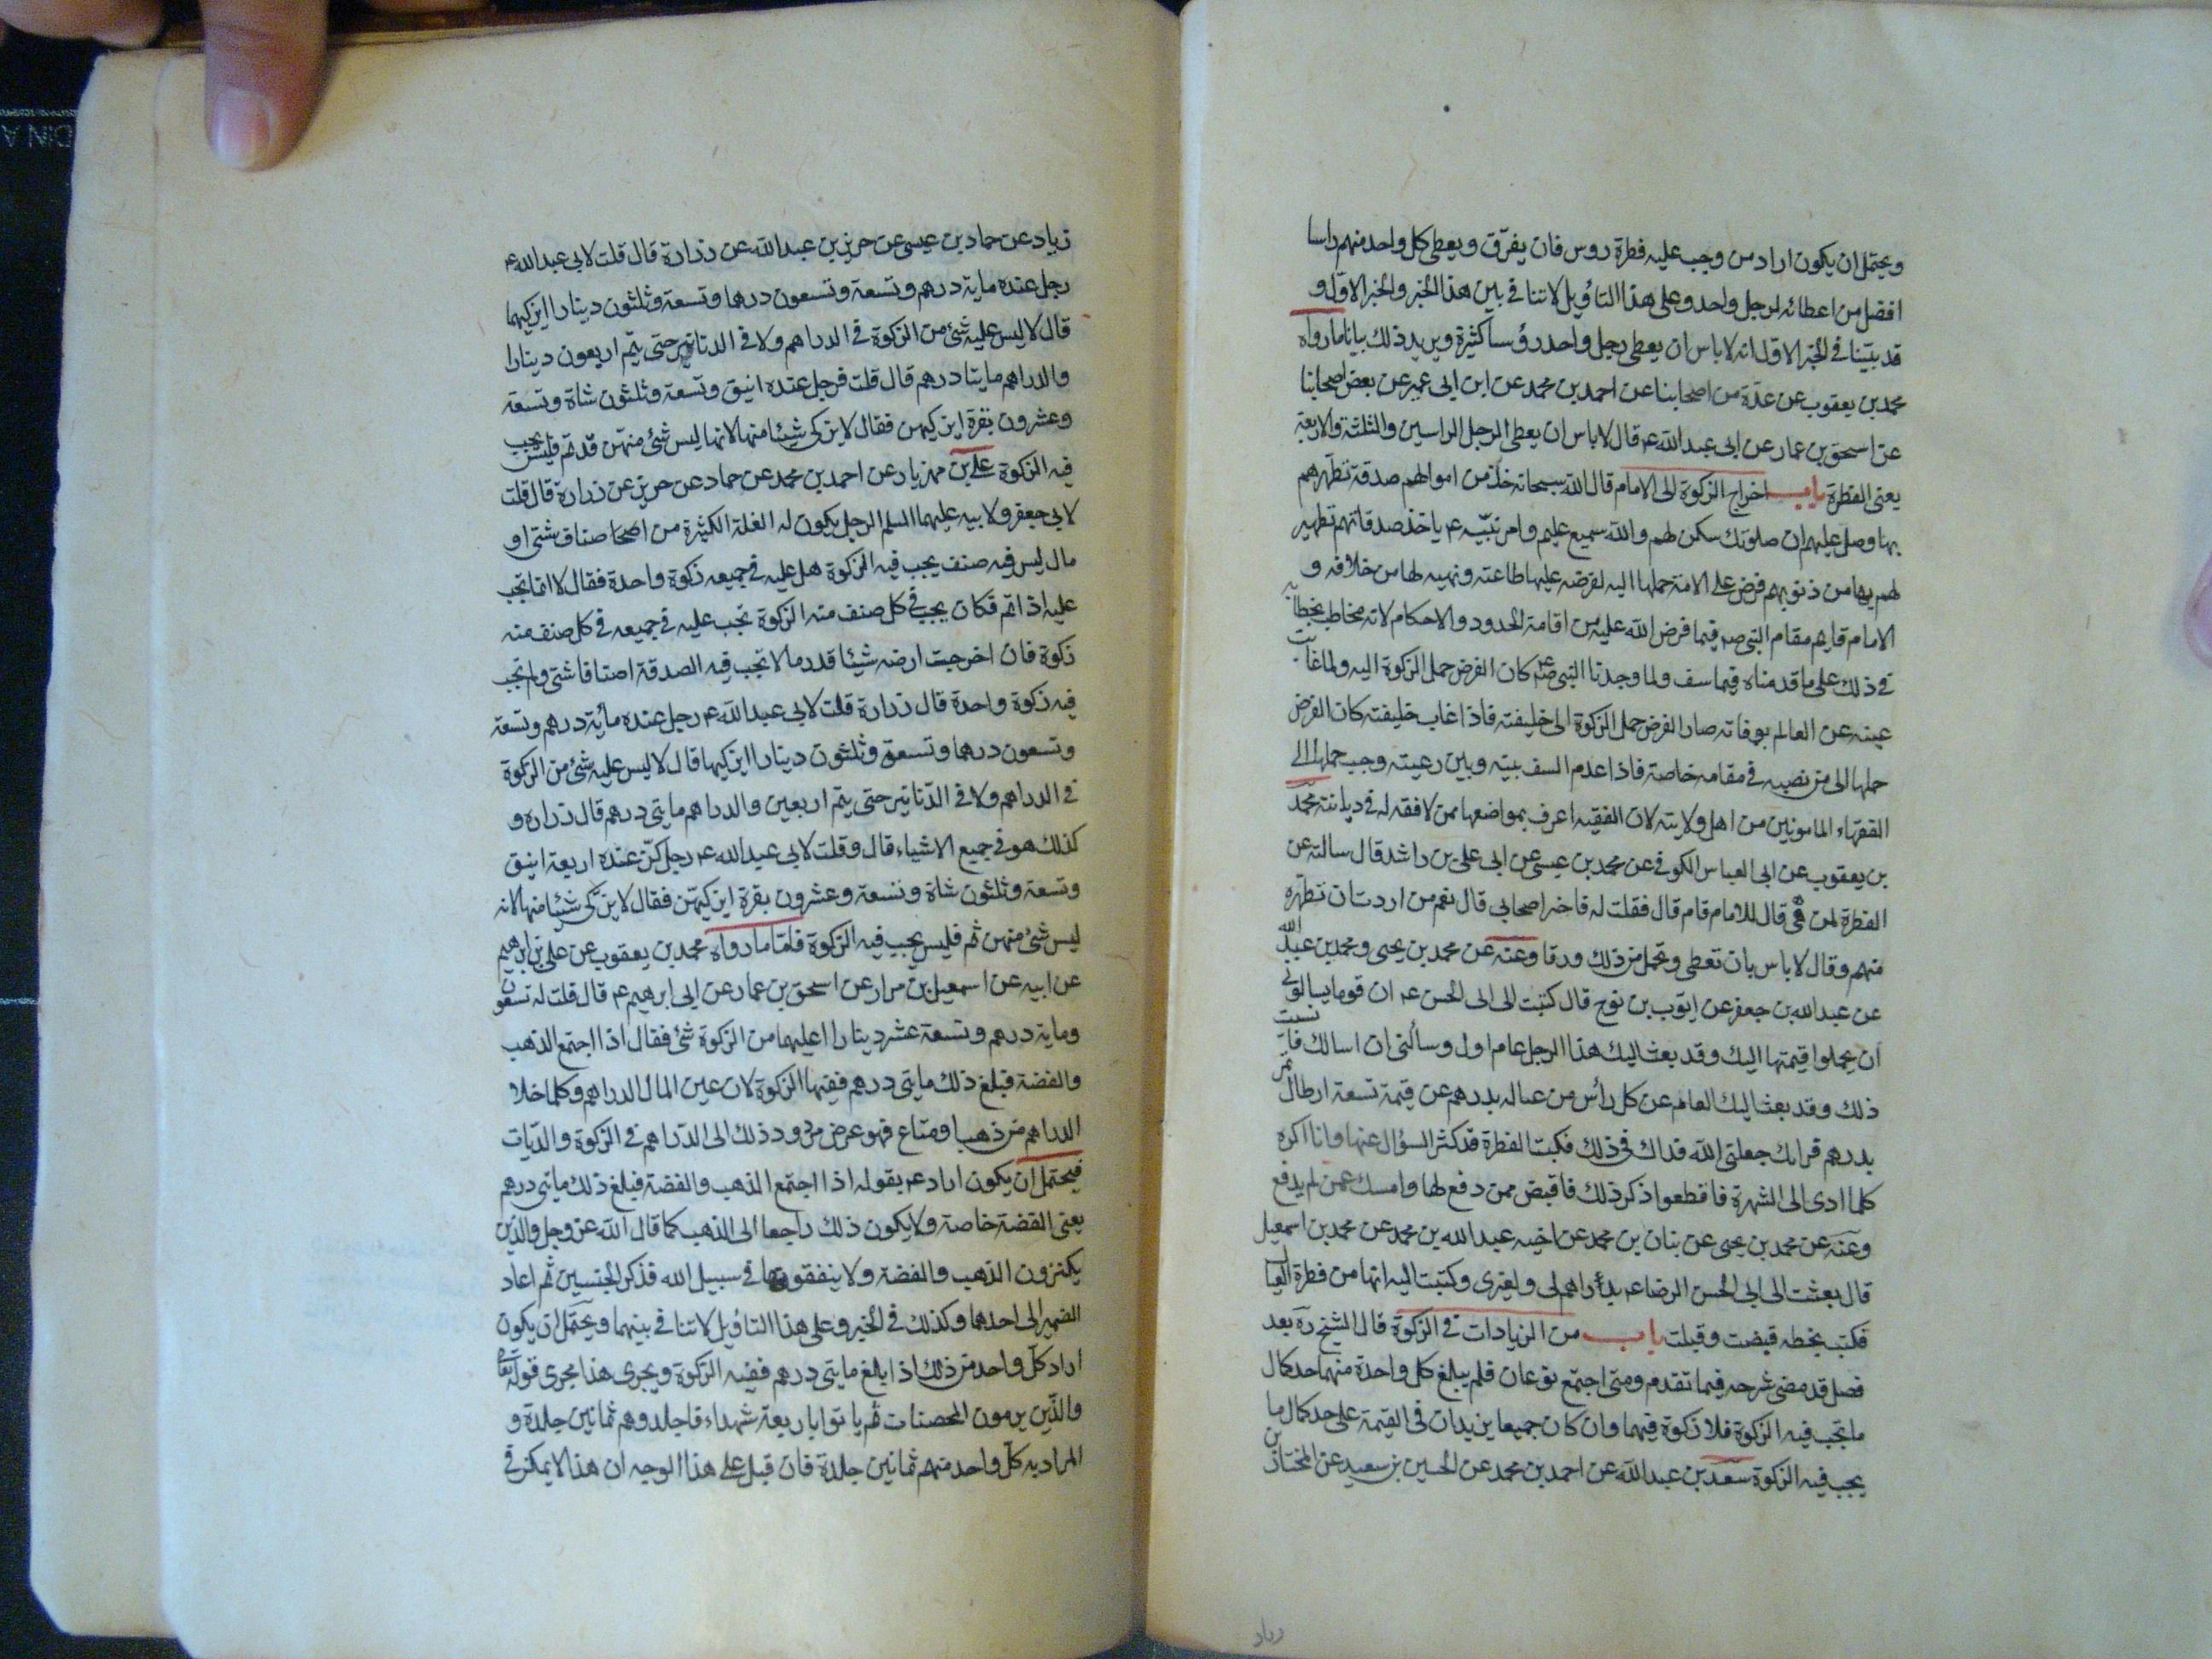 ويحتمل ان يكون اراد من وجب عليه فطرة روس فان يفرّق ويعطى كل واحد منهم راسا
افضل من اعطائه لرجل واحد وعلى هذا التأويل لا تنافى بين هذا الخبر والخبر الاول و
قد بيّنا فى الخبر الاول انه لا باس ان يعطى رجل واحد رؤسا كثيرة ويزيد ذلك بيانا مارواه
محمد بن يعقوب عن عدّة من اصحابنا عن احمد بن محمد عن ابن ابى عمير عن بعض اصحابنا
عن اسحق بن عمار عن ابى عبد الله ع قال لا باس ان يعطى الرجل الراسين والثلثة والاربعة
يعنى الفطرة باب اخراج الزكوة الى الامام قال الله سبحانه خذ من اموالهم صدقة تطهرهم
بها وصل عليهم ان صلوتك سكن لهم والله سميع عليم وامر نبيّه ع ياخذ صدقاتهم تطهير
لهم بها من ذنوبهم فرض على الامة حملها اليه لفرضه عليها طاعته ونهيه لها من خلافه و
الامام قايم مقام النبى ص فيما فرض الله عليه من اقامة الحدود والاحكام لانه مخاطب بخطابه
فى ذلك على ما قدمناه فيما سف ولما وجدنا النبى ص كان الفرض حمل الزكوة اليه ولما غابت
عينه عن العالم بوفاته صار الفرض حمل الزكوة الى خليفته فاذا غاب خليفته كان الفرض
حملها الى من نصبه فى مقامه خاصة فاذا عدم السف بينه وبين رعيته وجب حملها الى
الفقهاء المامونين من اهل ولايته لان الفقيه اعرف بمواضعها ممن لا فقه له فى ديانته محمد
بن يعقوب عن ابى العباس الكوفى عن محمد بن عيسى عن ابى على بن راشد قال سالته عن
الفطرة لمن هى قال للامام قام قال فقلت له فاخبر اصحابى قال نعم من اردت ان تطهره
منهم وقال لا باس بان تعطى وتحمل من ذلك ورقا وعنه عن محمد بن يحيى ومحمد بن عبد الله
عن عبد الله بن جعفر عن ايّوب بن نوح قال كتبت الى ابى الحسن ع ان قوما يسالونى
ان يحملوا قيمتها اليك وقد بعث اليك هذا الرجل عام اول وسألنى ان اسالك فانسيت
ذلك وقد بعث اليك العام عن كل رأس من عياله بدرهم عن قيمة تسعة ارطال تمر
بدرهم فرايك جعلنى الله فداك فى ذلك فكتب الفطرة قد كثر السؤال عنها وانا اكره
كلما ادى الى الشهرة فاقطعوا ذكر ذلك فاقبض ممن دفع لها وامسك عمن لم يدفع
وعنه عن محمد بن يحيى عن بنان بن محمد عن اخيه عبد الله بن محمد عن محمد بن اسمعيل
قال بعثت الى ابى الحسن الرضا ع بدراهم لى ولغيرى وكتبت اليه انها من فطرة العيال
فكتب بخطه قبضت وقبلت باب من الزيادات فى الزكوة قال الشيخ ره بعد
فصل قد مضى شرحه فيما تقدم ومتى اجتمع نوعان فلم يبلغ كل واحدة منهما حد كمال
ما تجب فيه الزكوة فلا زكوة فيهما وان كان جميعا يزيدان فى القيمة على حد كمال ما
يجب فيه الزكوة سعد بن عبد الله عن احمد بن محمد عن الحسين بن سعيد عن المختار بن
زياد
زياد عن حماد بن عيسى عن حريز بن عبد الله عن زرارة قال قلت لابى عبد الله ع
رجل عنده ماية درهم وتسعة وتسعون درهما وتسعة وثلثون دينارا ايزكيهما
قال لا ليس عليه شئ من الزكوة فى الدراهم ولا فى الدنانير حتى يتم اربعون دينارا
والدراهم مايتا درهم قال قلت فرجل عنده اينق وتسعة وثلثون شاة وتسعة
وعشرون بقرة ايزكيهن فقال لا يزكى شيئا منها لانها ليس شئ منهن قد تم فليس يجب
فيه الزكوة على بن مهزيار عن احمد بن محمد عن حماد عن حريز عن زرارة قال قلت
لابى جعفر ولابنه عليهما السلم الرجل يكون له الغلة الكثيرة من اصحا صناف شتى او
مال ليس فيه صنف يجب فيه الزكوة هل عليه فى جميعه زكوة واحدة فقال لا انما تجب
عليه اذا تم فكان يجب فى كل صنف منه الزكوة تجب عليه فى جميعه فى كل صنف منه
زكوة فان اخرجت ارضه شيئا قدر ما لا تجب فيه الصدقة اصنافا شتى ولم تجب
فيه زكوة واحدة قال زرارة قلت لابى عبد الله ع رجل عنده مأية درهم وتسعة
وتسعون درهما وتسعة وثلثون دينارا ايزكيها قال لا ليس عليه شئ من الزكوة
فى الدراهم ولا فى الدّنانير حتى يتم اربعين والدراهم مايتى درهم قال زراره و
كذلك هو فى جميع الاشياء قال وقلت لابى عبد الله ع رجل كنّ عنده اربعة اينق
وتسعة وثلثون شاة وتسعة وعشرون بقرة ايزكيهنّ فقال لا يزكى شيئا منها لانه
ليس شئ منهن تم فليس يجب فيه الزكوة فامّا مارواه محمد بن يعقوب عن على بن ابرهيم
عن ابيه عن اسمعيل بن مرار عن اسحق بن عمار عن ابى ابرهيم ع قال قلت له تسعون
وماية درهم وتسعة عشر دينارا اعليهما من الزكوة شئ فقال اذا اجتمع الذهب
والفضة فبلغ ذلك مايتى درهم ففيها الزكوة لان عين المال الدراهم وكلما خلا
الدراهم من ذهب او متاع فهو عرض مردود ذلك الى الدّراهم فى الزكوة والدّيات
فيحتمل ان يكون اراد ع بقوله اذا اجتمع الذهب والفضة فبلغ ذلك مايتى درهم
يعنى الفضة خاصة ولا يكون ذلك راجعا الى الذهب كما قال الله عز وجل والذين
يكنزون الذهب والفضة ولا ينفقونها فى سبيل الله فذكر الجنسين ثم اعاد
الضمير الى احدهما وكذلك فى الخبر وعلى هذا التاويل لا تنافى بينهما ويحتمل ان يكون
اراد كلّ واحد من ذلك اذا بلغ مايتى درهم ففيه الزكوة ويجرى هذا مجرى قوله تعا
والذّين يرمون المحصنات ثم ياتوا باربعة شهداء فاجلدوهم ثمانين جلدة و
المراد به كلّ واحد منهم ثمانين جلدة فان قيل على هذا الوجه ان هذا لا يمكن فى